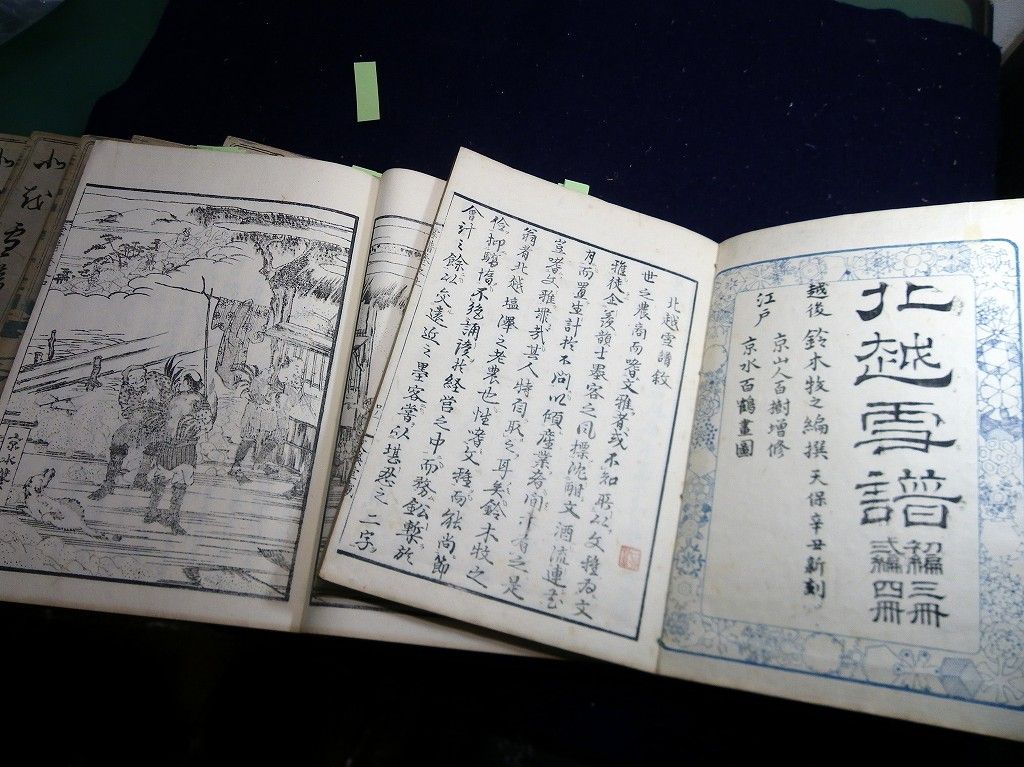 北越雪譜
初編三冊
弐編四冊
越後 鈴木牧之編撰 天保辛丑新刻
京山人百樹增修
江戸
京水百鶴畫圖
北越雪譜敘
世之農商而嗜文雅者或不知所以文雅為文
雅徒企羨韻士墨客之風標沈酣文酒流連花
月而置生計於不問以傾産業者間亦有之是
豈嗜文雅哉其人特自取之耳矣鈴木牧之
翁者北越塩澤之老農也性嗜文雅而能尚節
儉抑驕惰不絶誦読於経営之中而務鉛槧於
會計之餘以交遠近之墨客嘗以堪忍之二字
京水筆
北越雪譜